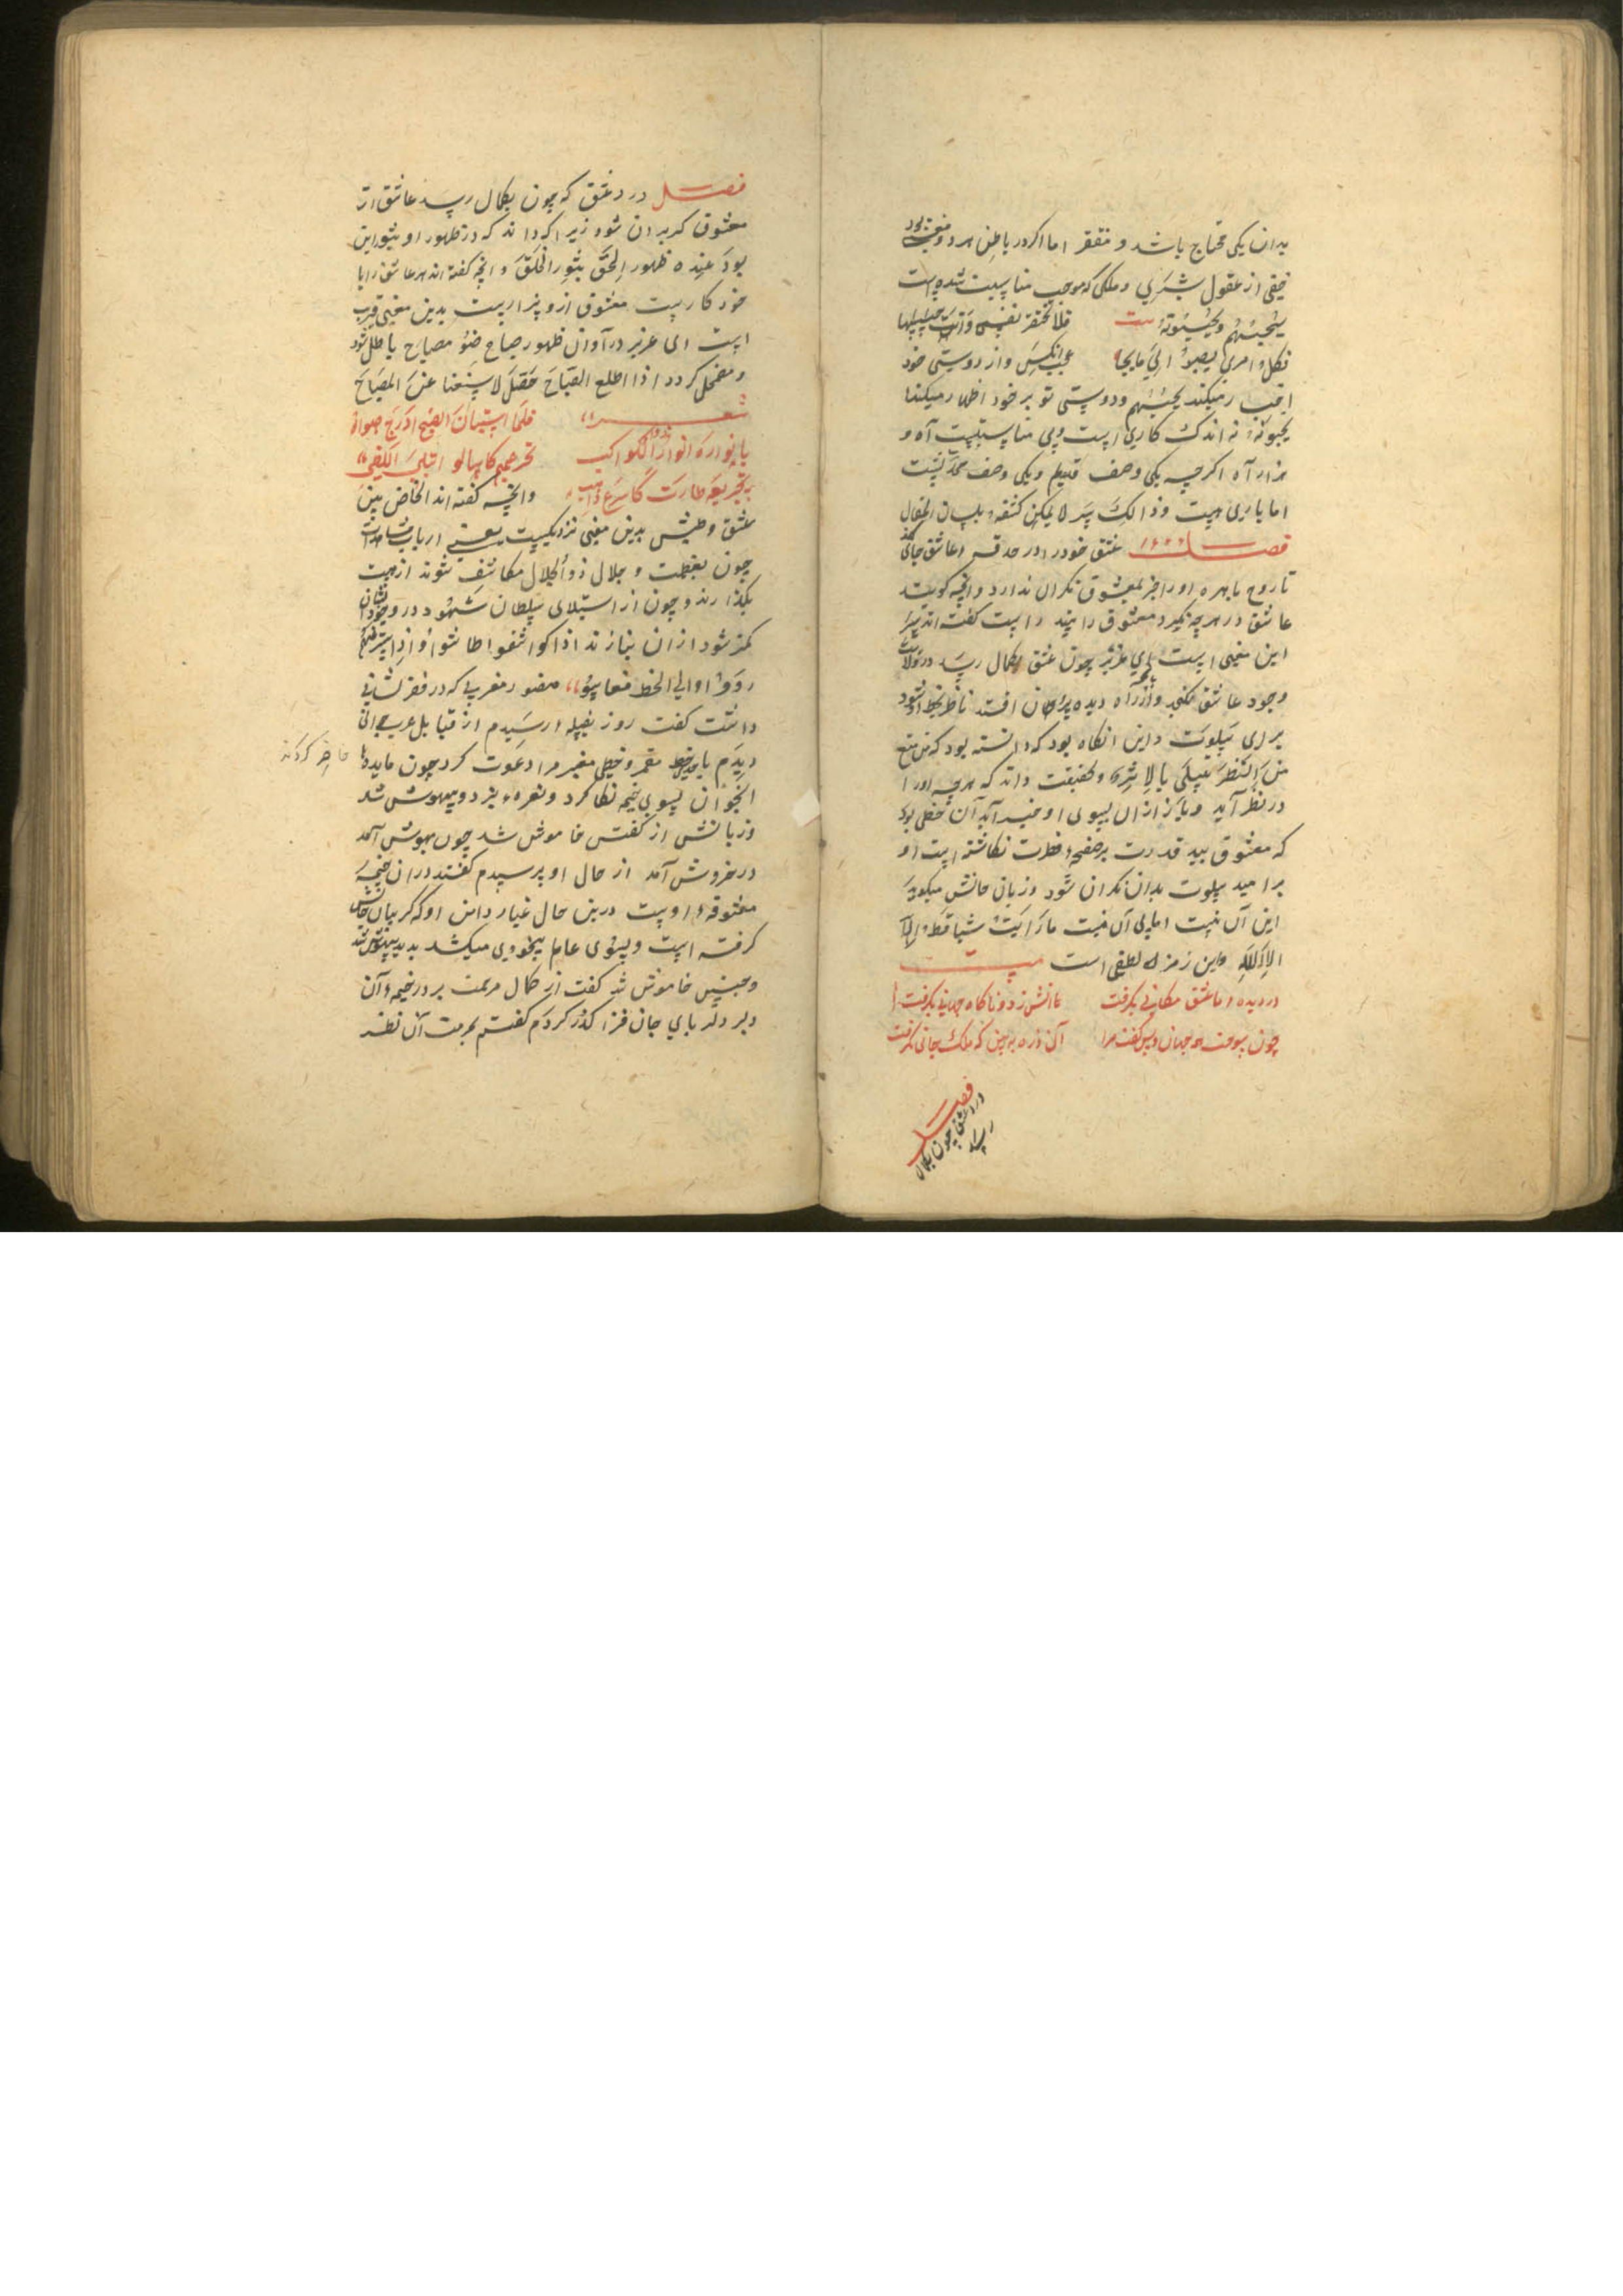 بدان یکی محتاج باشد و مفتقر اما اکر در باطن هر دو معنی بود
خفی از عقول بشری و ملکی که موجب مناسبت شده است
یحبهم و یحبونه بیت فلا تحتقر نفسی و انت حبیبها
فکل امری یصبوا الی ما یجا عجب انکس و از دوستی خود
میکند یحبهم و دوستی تو بر خود اظهار میکند
یحبونه نه اندک کاری است و بی مناسبتیست آه و
هزار آه اکرچه یکی وصف قدیم و یکی وصف محدثست
اما یاری هست و ذالک سر لا یمکن کشفه بلسان المقال
فصل عشق خود را در حدقه عاشق جای کند
تا روح با بهره او را جز بمعشوق نکران ندارد و انچه کویند
عاشق در هرچه نکرد معشوق را بیند راست کفته اند سر
این معنی است ای عزیز چون عشق بکمال رسد در ولایت
وجود عاشق نکنجد و از راه دیده بیرون افتد ناظر شود
برای سلوت و این انکاه بود که دانسته بود که من منع
من النظر یسلی بالاثر و بحقیقت داند که هرچه او را
در نظر آید و باز از ان بسوی او خبر آید آن خطی بود
که معشوق بید قدرت بر صفحه فطرت نکاشته است او
بر امید سلوت بدان نکران شود و زبان حالش میکوید
این آن نیست اما بی آن نیست ما رایت شیا قط الا
الا الله و این رمز لطیفی است بیت
در دیده ما عشق مکانی بکرفت آتش زد و ناکاه جهانی بکرفت
چون سوخت همه جهان و پس کفت مرا آن ذره ببین که ملک جانی بکرفت
فصل
در عشق چون بکمال
رسد
فصل در عشق که چون بکمال رسد عاشق از
معشوق کریزان شود زیرا که داند که در ظهور او ثبور این
بود عنده ظهور الحق ثبور الخلق و انچه کفته اند هر عاشق را با
خود کاریست معشوق ازو بیزاریست بدین معنی قریب
است ای عزیز در آوان ظهور صباح ضوء مصباح باطل شود
و مضمحل کردد اذا اطلع الصباح لاستغنا عن المصباح
شعر فلما استبان الصبح ادرج ضواه
بانواره انوار ضو الکواکب تجرعهم کاسا لو ابتلی اللظی
بتجریعه طارت کاسرع ذاهب و انچه کفته اند الخاص بین
عشق و طیش بدین معنی نزدیکیست یعنی ارباب مشاهدات
چون بعظمت و جلال ذو الجلال مکاشف شوند از هیبت
بکدازند و چون از استیلای سلطان شهود در وجودشان
کمتر شود از ان بنازند اذا کوشفوا طاشوا و اذا ستر علیهم
ردوا الی الحظ فعاشوا منصور مغربی که در فقر نشانی
داشت کفت روز بقبیله رسیدم از قبایل عرب جوانی
دیدم مرا دعوت کرد چون مایده حاضر کردند
انجوان بسوی خیمه نکاه کرد و نعره بزد و بیهوش شد
و زبانش از کفتن خاموش شد چون بهوش آمد
در خروش آمد از حال او پرسیدم کفتند در ان خیمه
معشوقه اوست درین حال غبار دامن او که کریبان جانش
کرفته است و بسوی عالم بیخودی میکشد بدید بیهوش شد
و چنین خاموش شد کفت از کمال مرحمت بر در خیمه آن
دلبر دلربای جان فزا کذر کردم کفتم بحرمت آن نظر